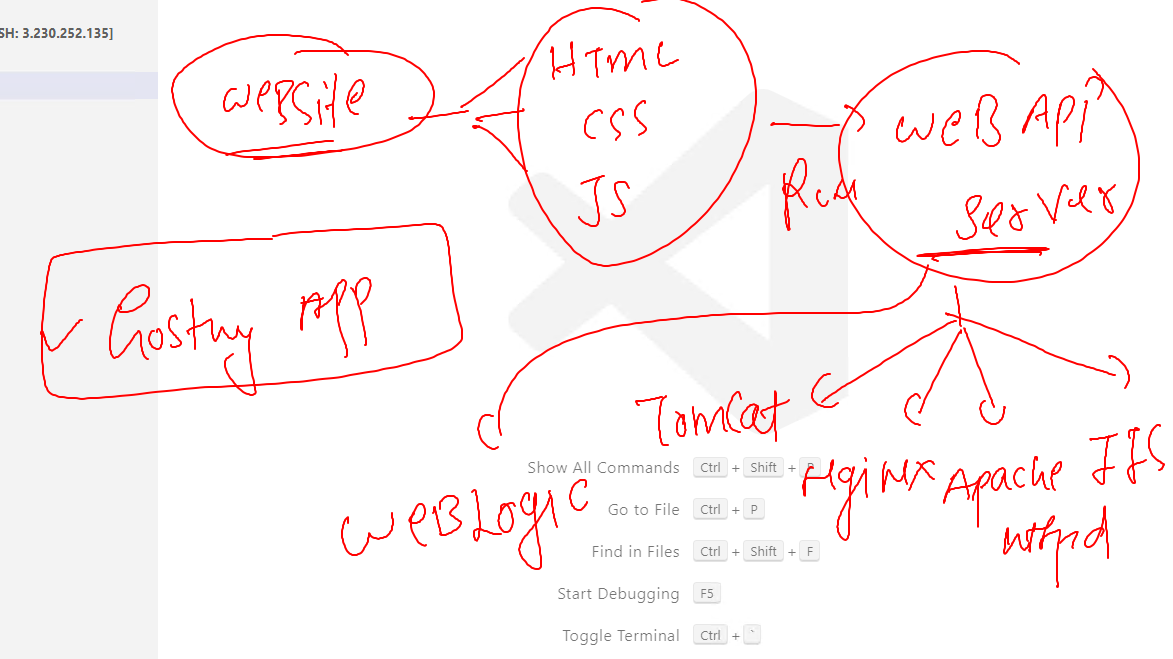 SH: 3.230.252.135]
WEBSite
HTML
CSS
JS
Run
WEB API
Server
Hosting APP
Tomcat
WEBLOGIC
NginX
Apache
httpd
IIS
Show All Commands Ctrl + Shift + P
Go to File Ctrl + P
Find in Files Ctrl + Shift + F
Start Debugging F5
Toggle Terminal Ctrl + `